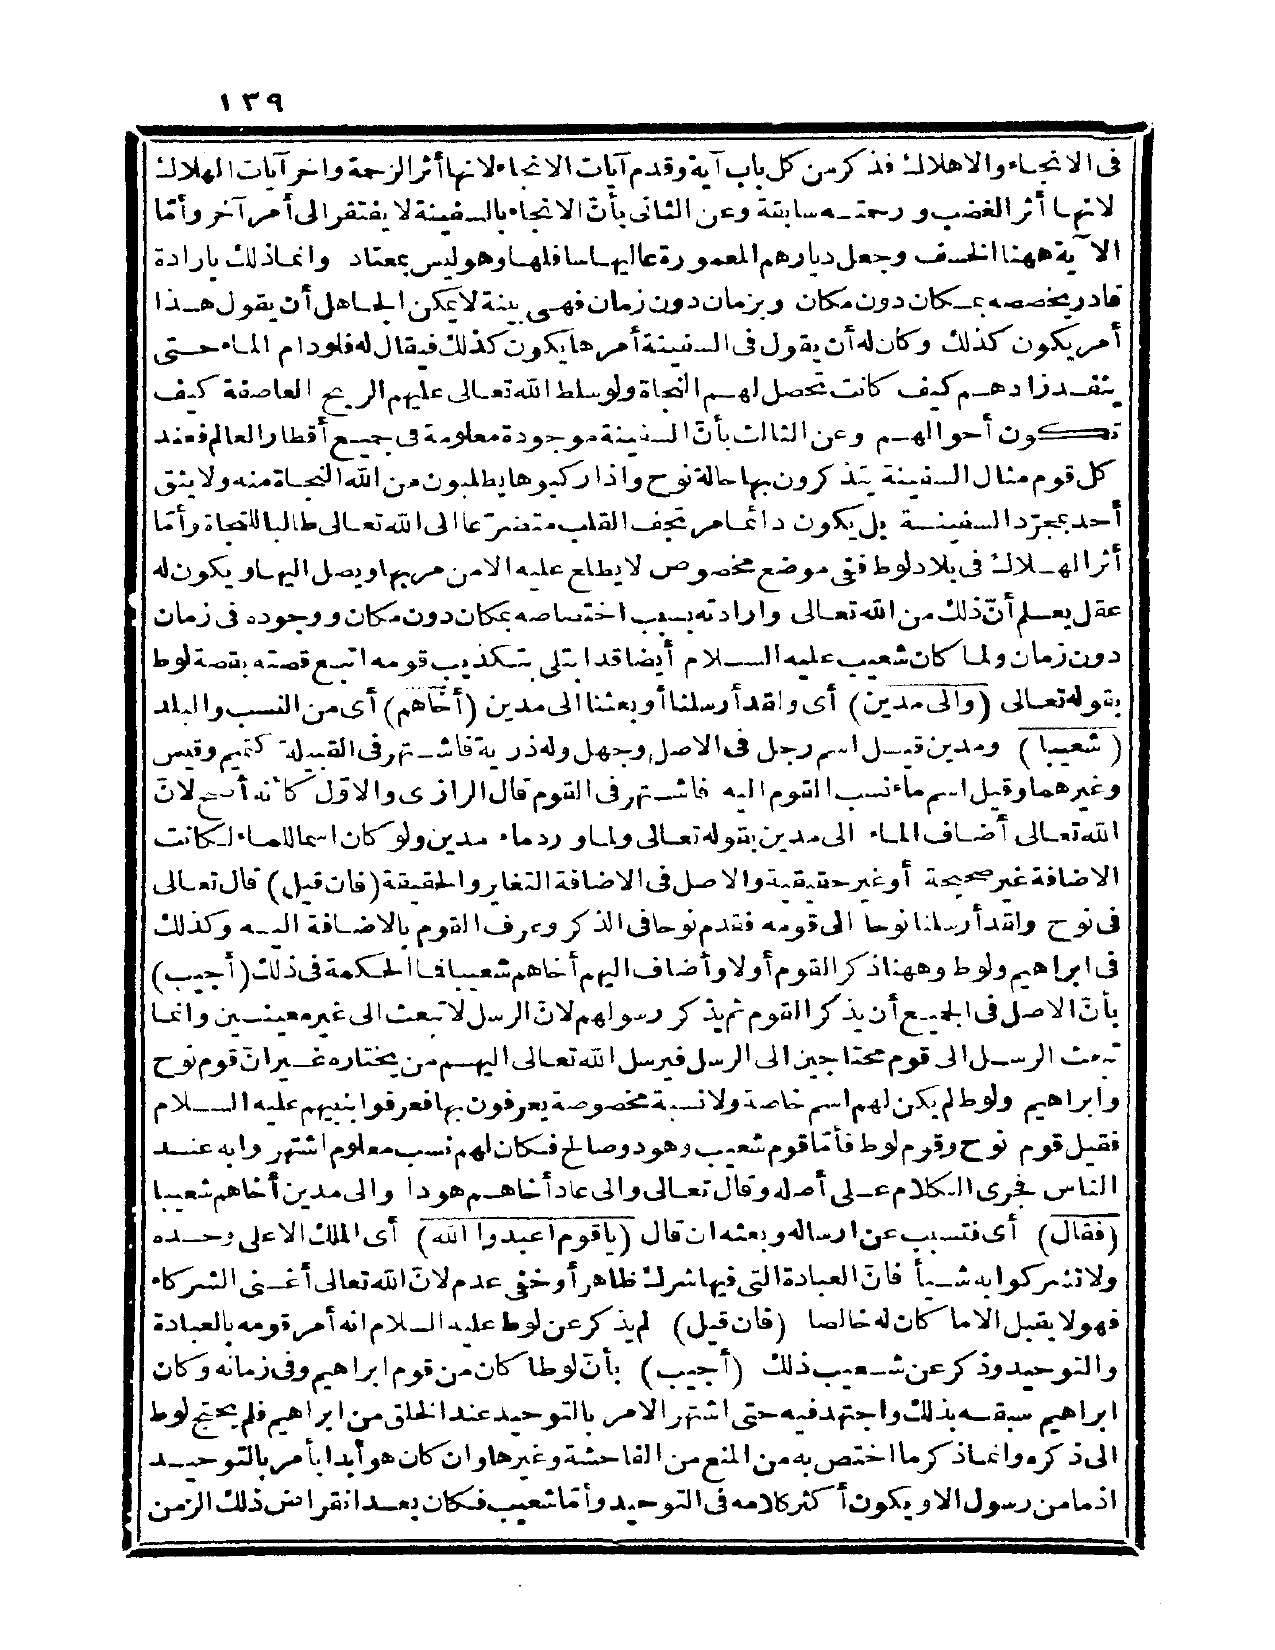 ١٣٩
فى الانجاء والاهلاك فذكر من كل باب آية وقدم آيات الانجاء لانها أثر الرحمة واخر آيات الهلاك
لانها أثر الغضب ورحمته سابقة وعن الثانى بأنّ الانجاء بالسفينة لا يفتقر الى أمر آخر وأمّا
الآية ههنا الخسف وجعل ديارهم المعمورة عاليها سافلها وهو ليس بمعتاد وانما ذلك بارادة
قادر يخصصه بمكان دون مكان وبزمان دون زمان فهى بينة لا يمكن الجاهل أن يقول هذا
أمر يكون كذلك وكان له أن يقول فى السفينة أمرها يكون كذلك فيقال له فلو دام الماء حتى
ينفد زادهم كيف كانت تحصل لهم النجاة ولو سلط الله تعالى عليهم الريح العاصفة كيف
تكون أحوالهم وعن الثالث بأنّ السفينة موجودة معلومة فى جميع أقطار العالم فعند
كل قوم مثال السفينة يتذكرون بها حالة نوح واذا ركبوها يطلبون من الله النجاة منه ولا يثق
أحد بمجرّد السفينة بل يكون دائما مرتجف القلب متضرّعا الى الله تعالى طالبا للنجاة وأمّا
أثر الهلاك فى بلاد لوط ففى موضع مخصوص لا يطلع عليه الا من مر بها ويصل اليها ويكون له
عقل يعلم أنّ ذلك من الله تعالى وارادته بسبب اختصاصه بمكان دون مكان ووجوده فى زمان
دون زمان ولما كان شعيب عليه السلام أيضا قد ابتلى بتكذيب قومه اتبع قصته بقصة لوط
بقوله تعالى (والى مدين) أى ولقد أرسلنا أو بعثنا الى مدين (أخاهم) أى من النسب والبلد
(شعيبا) ومدين قيل اسم رجل فى الاصل وجهل وله ذرية فاشتهر فى القبيلة كتميم وقيس
وغيرهما وقيل اسم ماء نسب القوم اليه فاشتهر فى القوم قال الرازى والاوّل كأنه أصح لانّ
الله تعالى أضاف الماء الى مدين بقوله تعالى ولما ورد ماء مدين ولو كان اسما للماء لكانت
الاضافة غير صحيحة أو غير حقيقية والاصل فى الاضافة التغاير والحقيقة (فان قيل) قال تعالى
فى نوح ولقد أرسلنا نوحا الى قومه فقدم نوحا فى الذكر وعرف القوم بالاضافة اليه وكذلك
فى ابراهيم ولوط وههنا ذكر القوم أولا وأضاف اليهم أخاهم شعيبا فما الحكمة فى ذلك (أجيب)
بأنّ الاصل فى الجميع أن يذكر القوم ثم يذكر رسولهم لانّ الرسل لا تبعث الى غير معينين وانما
تبعث الرسل الى قوم محتاجين الى الرسل فيرسل الله تعالى اليهم من يختاره غير انّ قوم نوح
وابراهيم ولوط لم يكن لهم اسم خاصة ولا نسبة مخصوصة يعرفون بها فعرفوا بنبيهم عليه السلام
فقيل قوم نوح وقوم لوط فأمّا قوم شعيب وهود وصالح فكان لهم نسب معلوم اشتهروا به عند
الناس فجرى الكلام على أصله وقال تعالى والى عاد أخاهم هودا والى مدين أخاهم شعيبا
(فقال) أى فتسبب عن ارساله وبعثه ان قال (ياقوم اعبدوا الله) أى الملك الاعلى وحده
ولا تشركوا به شيأ فانّ العبادة التى فيها شرك ظاهر أو خفى عدم لانّ الله تعالى أغنى الشركاء
فهو لا يقبل الا ما كان له خالصا (فان قيل) لم يذكر عن لوط عليه السلام انه أمر قومه بالعبادة
والتوحيد وذكر عن شعيب ذلك (أجيب) بأنّ لوطا كان من قوم ابراهيم وفى زمانه وكان
ابراهيم سبقه بذلك واجتهد فيه حتى اشتهر الامر بالتوحيد عند الخلق من ابراهيم فلم يحتج لوط
الى ذكره وانما ذكر ما اختص به من المنع من الفاحشة وغيرها وان كان هو أبدا يأمر بالتوحيد
اذ ما من رسول الا ويكون أكثر كلامه فى التوحيد وأمّا شعيب فكان بعد انقراض ذلك الزمن